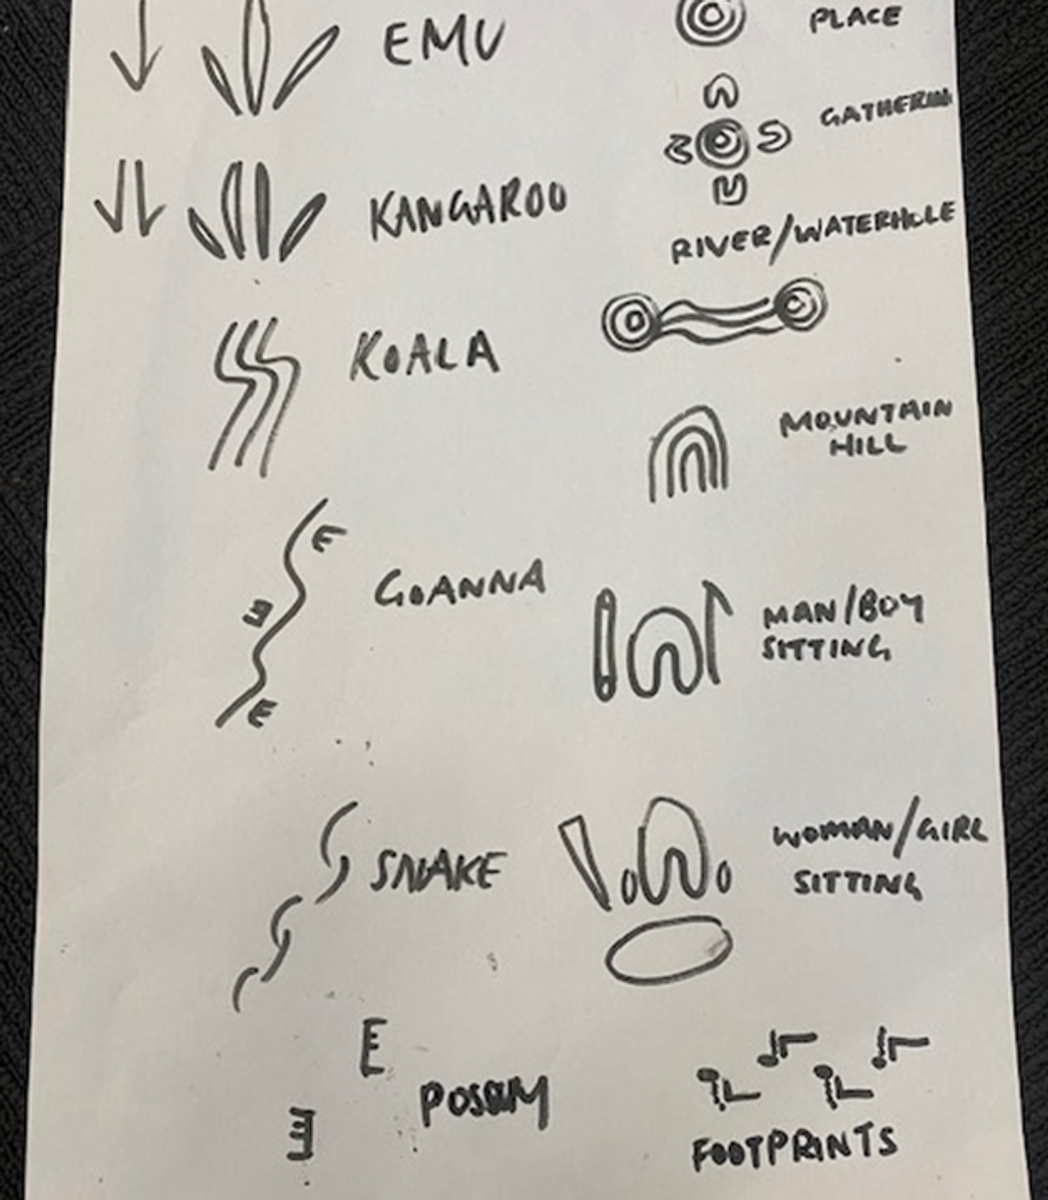 EMU
KANGAROO
KOALA
GOANNA
SNAKE
POSSUM
PLACE
GATHERIN
RIVER/WATERHOLE
MOUNTAIN
HILL
MAN/BOY
SITTING
WOMAN/GIRL
SITTING
FOOTPRINTS